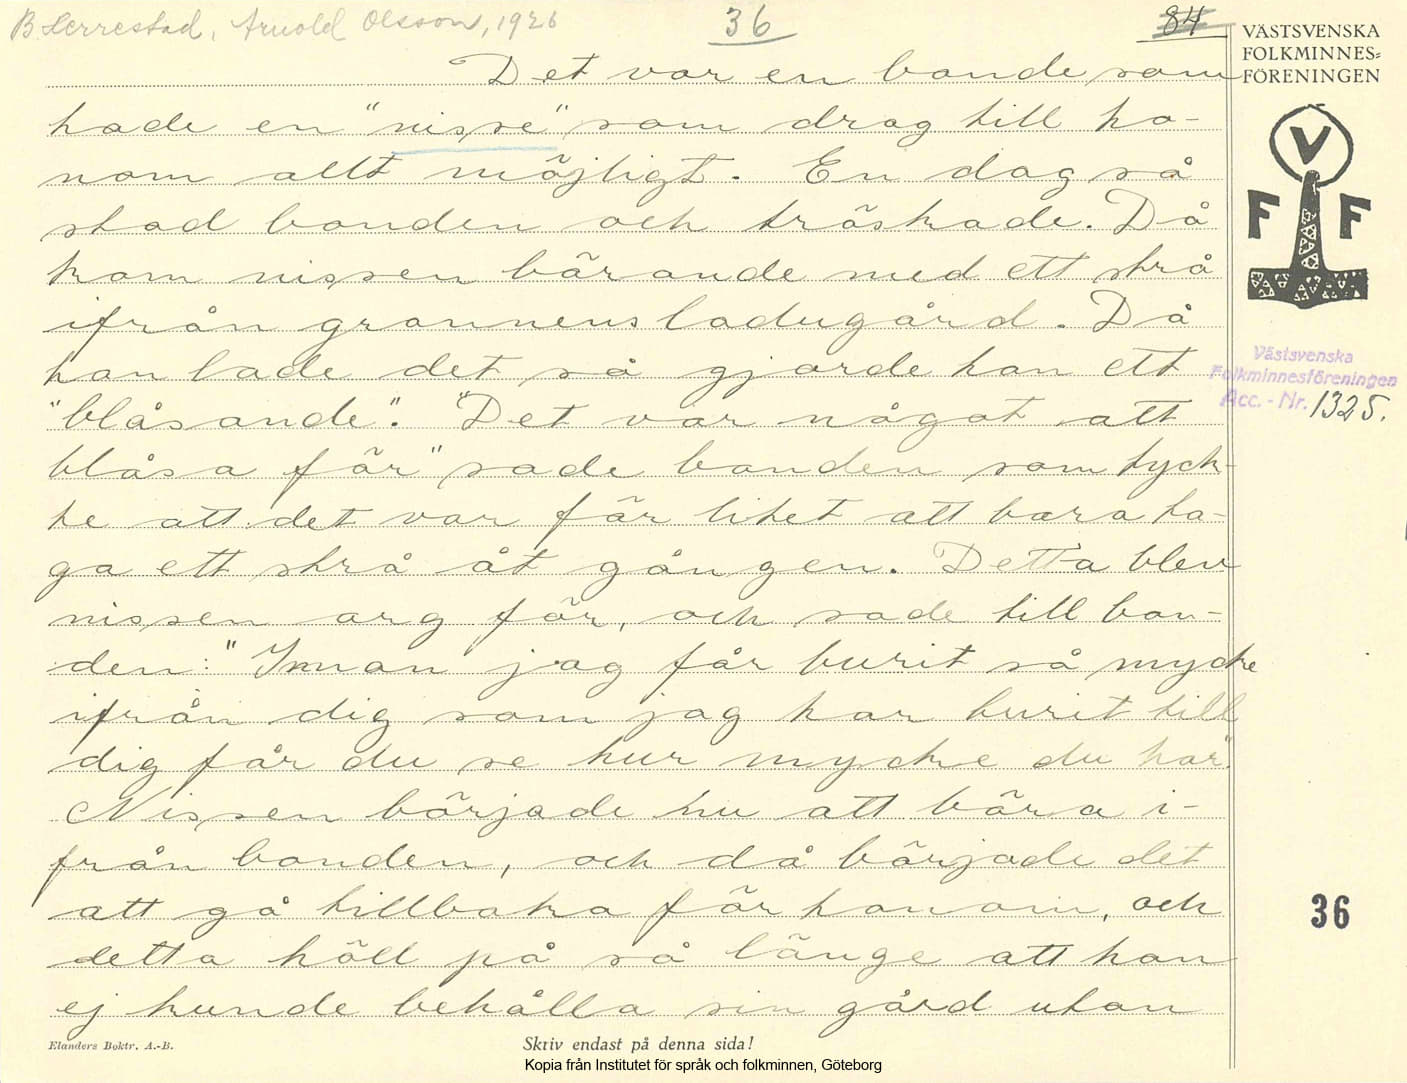 B Lerrestad, Arnold Olsson, 1926
36
84
VÄSTSVENSKA
FOLKMINNES=
FÖRENINGEN
V
F F
Det var en bonde som
hade en "nisse" som drog till ho-
nom allt möjligt. En dag så
stod bonden och tröskade. Då
kom nissen bärande med ett strå
ifrån grannens ladugård. Då
han lade det så gjorde han ett
"blåsande". "Det var något att
blåsa för" sade bonden som tyck-
te att det var för litet att bara ta-
ga ett strå åt gången. Detta blev
nissen arg för, och sade till bon-
den: "Innan jag får burit så mycke
ifrån dig som jag har burit till
dig får du se hur mycke du har".
Nissen började nu att bära i-
från bonden, och då började det
att gå tillbaka för honom, och
detta höll på så länge att han
ej kunde behålla sin gård utan
Västsvenska
Folkminnesföreningen
Acc. - Nr. 1325.
36
Elanders Boktr. A.-B.
Skriv endast på denna sida!
Kopia från Institutet för språk och folkminnen, Göteborg